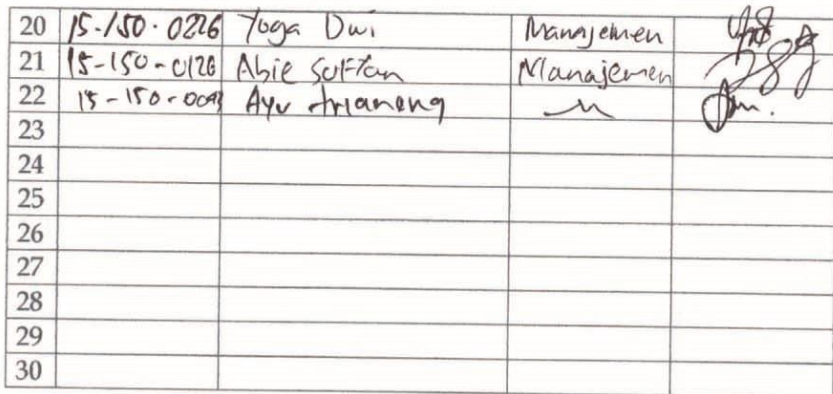 20 15-150-0226 Yoga Dwi Manajemen
21 15-150-0126 Abie Sultan Manajemen
22 15-150-0093 Ayu
23
24
25
26
27
28
29
30